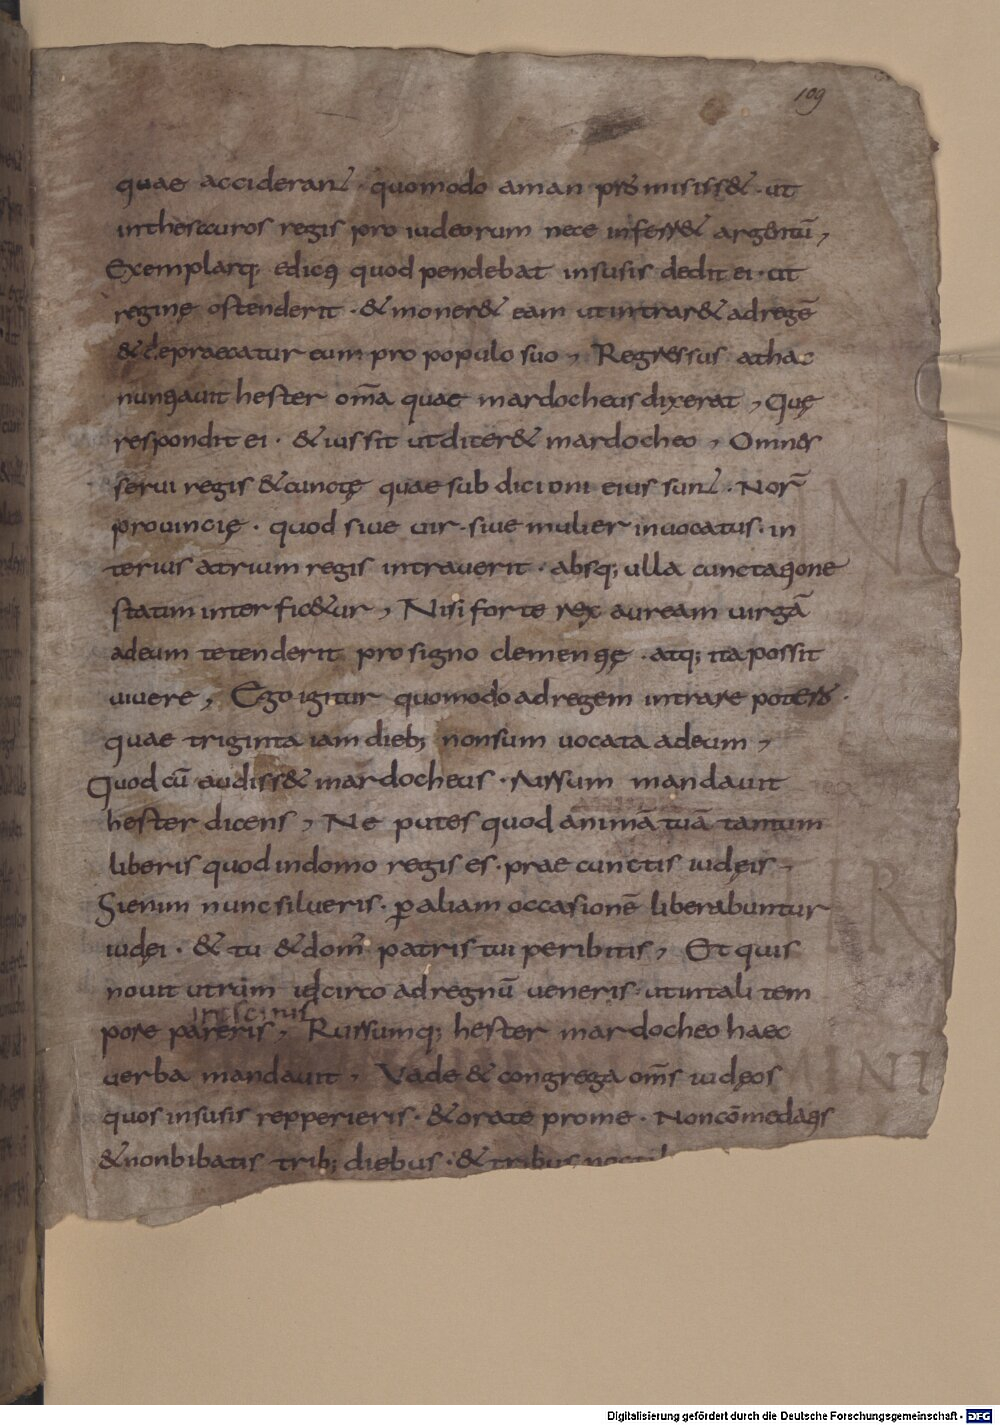 109
quae acciderant · quomodo aman promisiss& · ut
inthesauros regis pro iudeorum nece inferr& argentū,
Exemplarq; edicti quod pendebat insusis dedit ei · ut
reginę ostenderit · & moner& eam utintrar& adregē
& depraecatur eum pro populo suo, Regressus athac
nuntiauit hester om̄a quae mardocheus dixerat, Quę
respondit ei · & iussit utdicer& mardocheo, Omnes
serui regis & cunctę quae sub dicioni eius sunt · Nor̄
prouincię · quod siue uir · siue mulier inuocatus · in
terius atrium regis intrauerit · absq; ulla cunctatione
statim interfic&ur, Nisi forte rex auream uirgā
adeum tetenderit pro signo clementię · atq; ita possit
uiuere, Ego igitur quomodo adregem intrare potero ·
quae triginta iam dieb; nonsum uocata adeum,
Quod cū audiss& mardocheus · rursum mandauit
hester dicens, Ne putes quod animā tuā tantum
liberis quod indomo regis es · prae cunctis iudęis,
Sienim nunc silueris · ꝑ aliam occasionē liberabuntur
iudęi · & tu & dom̄ patris tui peribitis, Et quis
nouit utrum idcirco adregnū ueneris · utintali tem
pore pareris, Rursumq; hester mardocheo haec
uerba mandauit, Vade & congrega om̄s iudęos
quos insusis repperieris · & orate prome · Noncōmedatis
& nonbibatis trib; diebus · & tribus noctib
NC
TIR
MINI
Digitalisierung gefördert durch die Deutsche Forschungsgemeinschaft - DFG